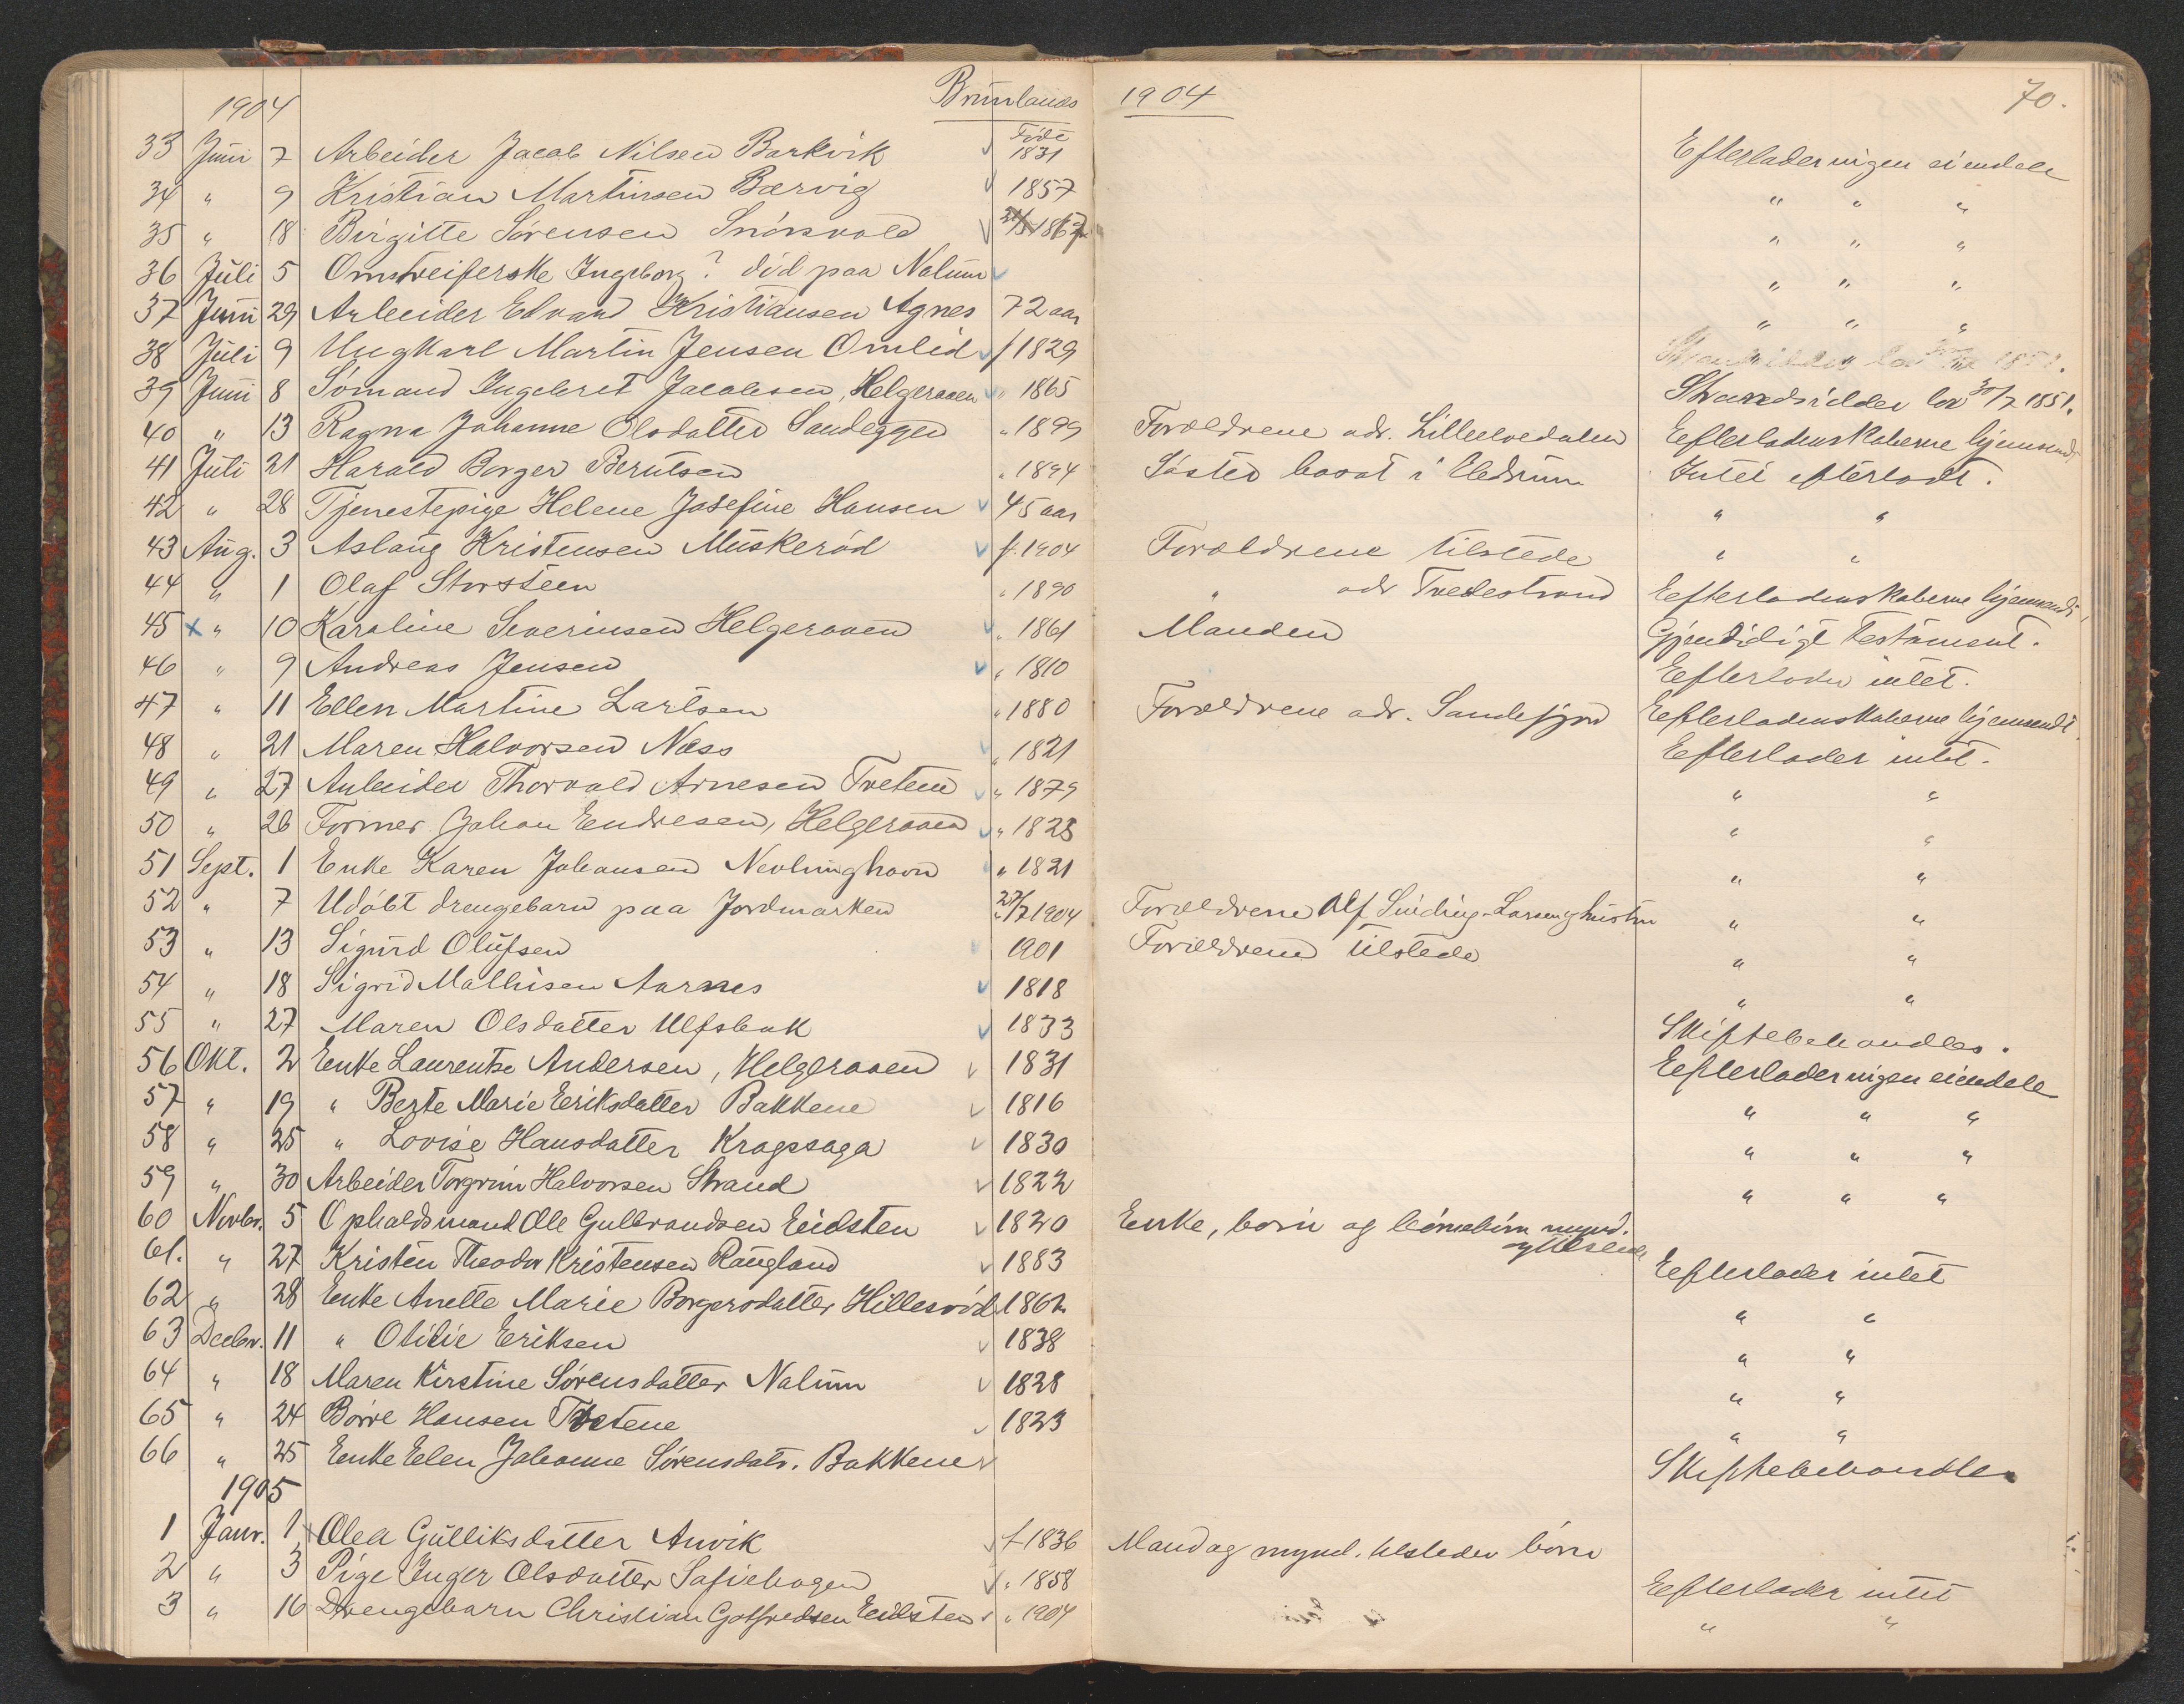 1904 Brunlands 1904 70.
Føde
33 Juni 7 Arbeider Jacob Nilsen Barkvik 1831 Efterlader ingen eiendele
34 " 9 Kristian Martinsen Bærvig 1857 " " "
35 " 18 Birgitte Sørensen 1867 " " "
36 Juli 5 Omstreiferske Ingeborg? død paa Nalum " " "
37 Juni 29 Arbeider Edvard Kristiansen Agnes 72 aar " " "
38 Juli 9 Ungkarl Martin Jensen Omlid f 1829
39 Juni 8 Sømand Ingebret Jacobsen, Helgeroaen " 1865 Strandsidder lov 30/7 1851.
40 " 13 Ragna Johanne Olsdatter Sandeggen " 1899 Forældrene adr. Lilleelvedalen Efterladenskaberne hjemsendt
41 Juli 21 Harald Borger Berntsen " 1894 Søster bosat i Hedrum Intet efterladt.
42 " 28 Tjenestepige Helene Josefine Hansen 45 aar " "
43 Aug. 3 Aslaug Kristensen Muskerød f. 1904 Forældrene tilstede " "
44 " 1 Olaf Storsteen " 1890 " adr Tvedestrand Efterladenskaberne hjemsendt,
45 x " 10 Karoline Severinsen Helgeroaen " 1861 Manden Gjensidigt testament.
46 " 9 Andreas Jensen " 1810 Efterlader intet.
47 " 11 Ellen Martine Larsen " 1880 Forældrene adr. Sandefjord Efterladenskaberne hjemsendt.
48 " 21 Maren Halvorsen Næss " 1821 Efterlader intet.
49 " 27 Arbeider Thorvald Arnesen Tveten " 1879 " "
50 " 26 Former Johan Endresen, Helgeroaen " 1828 " "
51 Sept. 1 Enke Karen Johansen Nevlunghavn " 1821 " "
52 " 7 Udøbt drengebarn paa Jordmarken 27/7 1904 Forældrene Alf Sinding-Larsen og hustru " "
53 " 13 Sigurd Olufsen 1901 Forældrene tilstede " "
54 " 18 Sigrid Mathisen Aarnes 1818 " "
55 " 27 Maren Olsdatter Ulfsbak 1833 Skiftebehandles.
56 Okt. 2 Enke Laurentse Andersen, Helgeroaen 1831 Efterlader ingen eiendele
57 " 19 " Berte Marie Eriksdatter Bakkene 1816 " " "
58 " 25 " Lovise Hansdatter Kragssaga 1830 " " "
59 " 30 Arbeider Torgrim Halvorsen Strand 1822 " " "
60 Novbr. 5 Opholdsmand Ole Gulbrandsen Eidsten 1820 Enke, børn og børnebørn mynd.
og tilstede
61. " 27 Kristen Theodor Kristensen Raugland 1883 Efterlader intet
62 " 28 Enke Anette Marie Borgersdatter Hillesrød 1862 " "
63 Decbr. 11 " Otilie Eriksen 1838 " "
64 " 18 Maren Kirstine Sørensdatter Nalum 1828 " "
65 " 24 Børre Hansen Tvetene 1823 " "
66 " 25 Enke Elen Johanne Sørensdatr. Bakkene Skiftebehandles
1905
1 Janr. 1 Olea Gulliksdatter Anvik f 1836 Mand og mynd. tilstedev børn
2 " 3 Pige Inger Olsdatter Safiehagen " 1858 Efterlader intet
3 " 16 Drengebarn Christian Gotfredsen Eidsten " 1904 " "